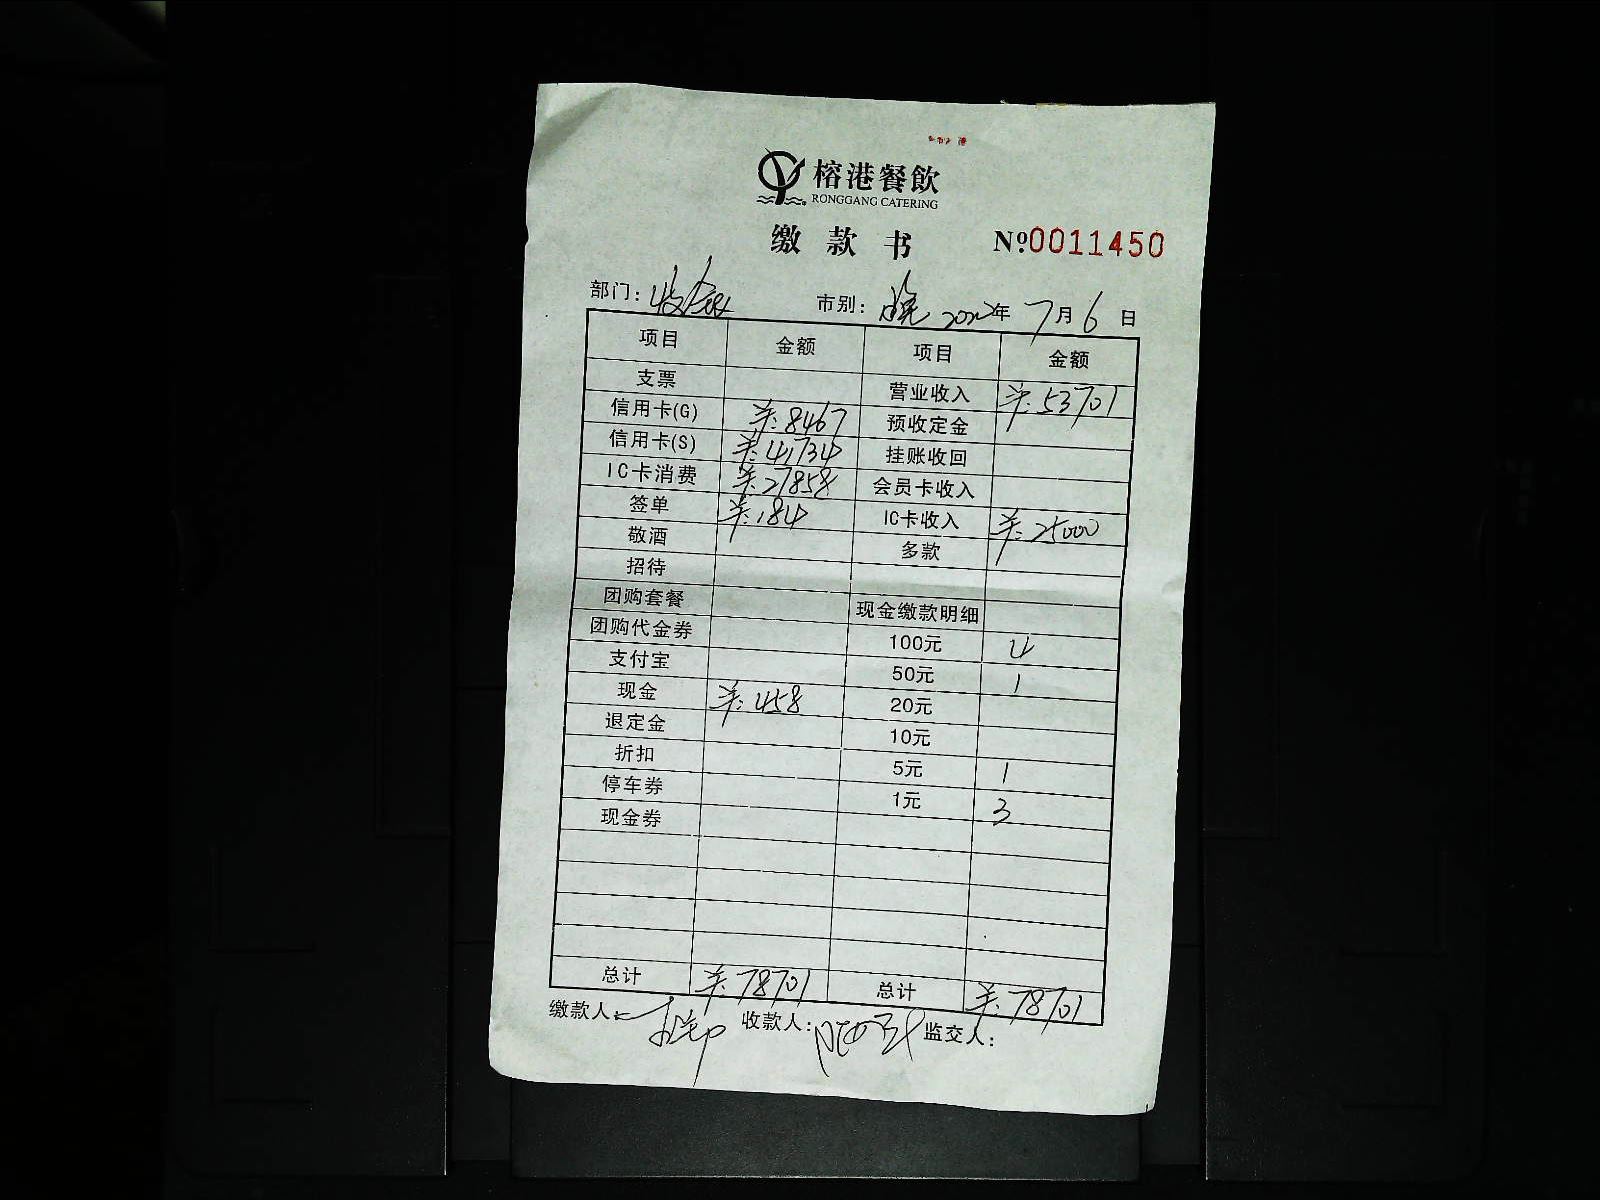 榕港餐飲
RONGGANG CATERING
缴款书 №0011450
部门：收银 市别：晚 2022年7月6日
项目 金额 项目 金额
支票 营业收入 ¥:53701
信用卡(G) ¥:8467 预收定金
信用卡(S) ¥:41734 挂账收回
IC卡消费 ¥:27858 会员卡收入
签单 ¥:184 IC卡收入 ¥:25000
敬酒 多款
招待
团购套餐 现金缴款明细
团购代金券 100元 4
支付宝 50元 1
现金 ¥:458 20元
退定金 10元
折扣 5元 1
停车券 1元 3
现金券
总计 ¥:78701 总计 ¥:78701
缴款人： 收款人： 监交人：